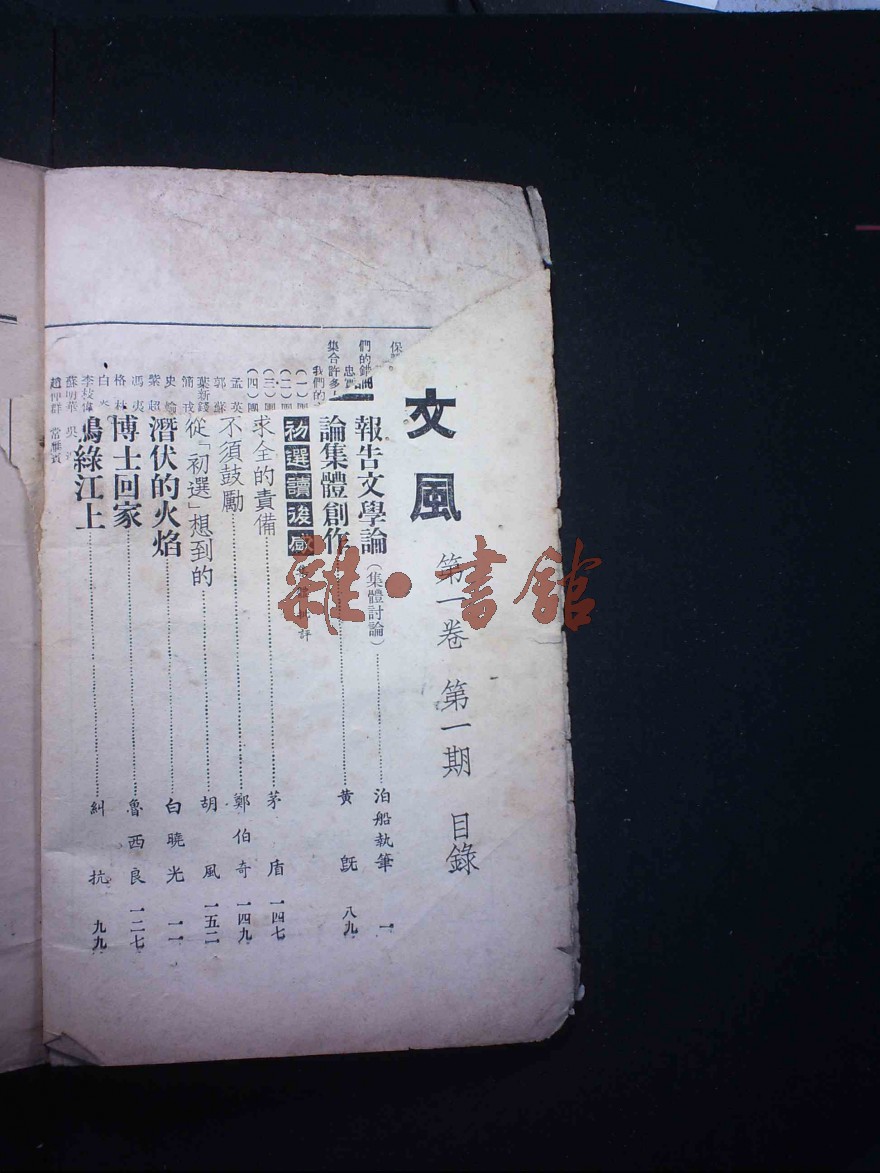 文風 第一卷 第一期 目錄
報告文學論（集體討論）……泊船執筆 一
論集體創作……黃旣 八九
初選讀後感
求全的責備……茅盾 一四七
不須鼓勵……鄭伯奇 一四九
從「初選」想到的……胡風 一五二
潛伏的火焰……白曉光 一一
博士回家……魯西良 一二七
鴨綠江上……糾抗 九九
們的
集合許多
我們的
（一）
（二）
（三）
（四）
郭蘇
孟英
葉新錢
紫超
馮夷
格林
白
李枝
蘇明華 吳
趙仲群 常
雜·書館